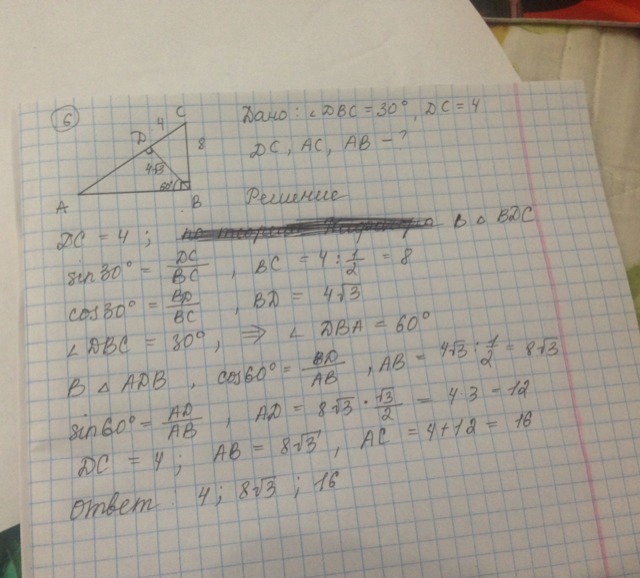 6
Дано: ∠DBC = 30°, DC = 4
DC, AC, AB - ?
C
4
D
8
4√3
60°
A
B
Решение
DC = 4; В △ BDC
sin30° = DC/BC, BC = 4 : 1/2 = 8
cos30° = BD/BC, BD = 4√3
∠DBC = 30°, ⇒ ∠DBA = 60°
В △ ADB, cos60° = BD/AB, AB = 4√3 : 1/2 = 8√3
sin60° = AD/AB, AD = 8√3 · √3/2 = 4·3 = 12
DC = 4; AB = 8√3, AC = 4+12 = 16
Ответ: 4; 8√3; 16